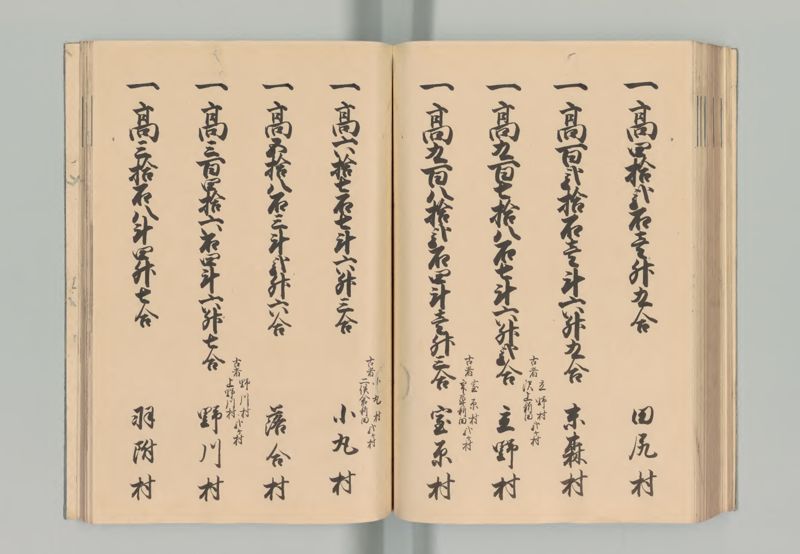 一高四拾弐石壱升九合 田尻村
一高百弐拾石壱斗六升九合 末森村
古者 立野村
沢上新田 弐ヶ村
一高九百七拾八石七斗六升弐合 立野村
古者 室原村
弐ヶ村
一高九百八拾弐石四斗壱升三合 室原村
古者 小丸村
弐ヶ村
一高六拾七石七斗六升三合 小丸村
一高五拾八石三斗弐升六合 落合村
古者 野川村
上野川村 弐ヶ村
一高三百四拾六石四斗六升七合 野川村
一高三拾石八斗四升七合 羽附村